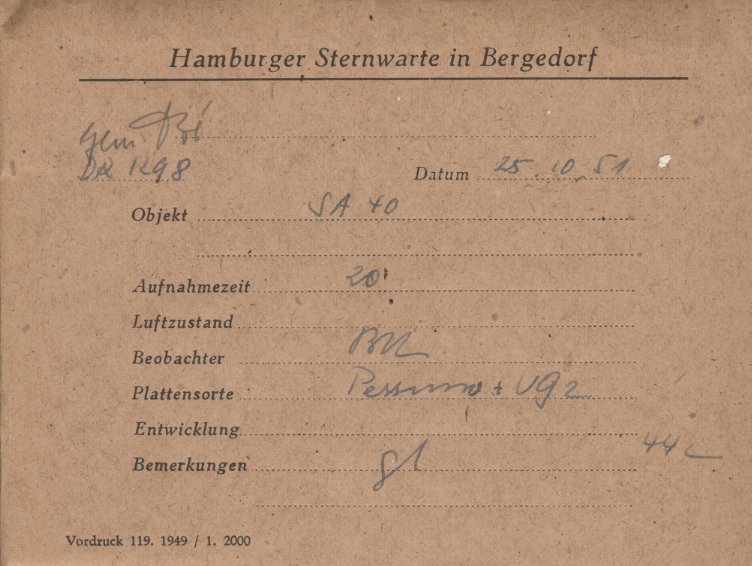 Hamburger Sternwarte in Bergedorf
gem
DR 1298 Datum 25.10.51
Objekt SA 40
Aufnahmezeit 20'
Luftzustand
Beobachter
Plattensorte + UG2
Entwicklung
Bemerkungen gl 44c
Vordruck 119. 1949 / 1. 2000